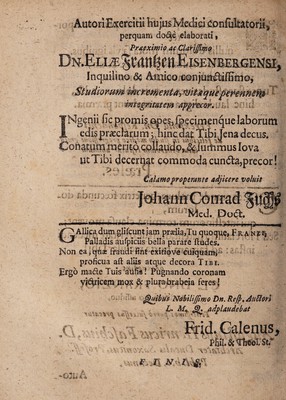 Autori Exercitii hujus Medici consultatorii,
perquam doctè elaborati,
Praeximio ac Clarissimo
DN. ELIÆ Frantzen EISENBERGENSI,
Inquilino & Amico conjunctissimo,
Studiorum incrementa, vitæque perennem
integritatem apprecor.
INgenii sic promis opes, specimenque laborum
edis præclarum; hinc dat Tibi Jena decus.
Conatum meritò collaudo, & summus Iova
ut Tibi decernat commoda cuncta, precor!
Calamo properante adjicere voluit
Johann Conrad
Med. Doct.
GAllica dum gliscunt jam prælia, Tu quoque, FRANZI,
Palladis auspiciis bella parare studes.
Non ea, quæ fraudi sint exitiove cuiquam,
proficua ast aliis atque decora TIBI.
Ergò macte Tuis ausis! Pugnando coronam
victricem mox & plura brabeia feres!
Quibus Nobilissimo Dn. Resp. Auctori
L. M. Q. adplaudebat
Frid. Calenus,
Phil. & Theol. St.
FINIS.
Auto-